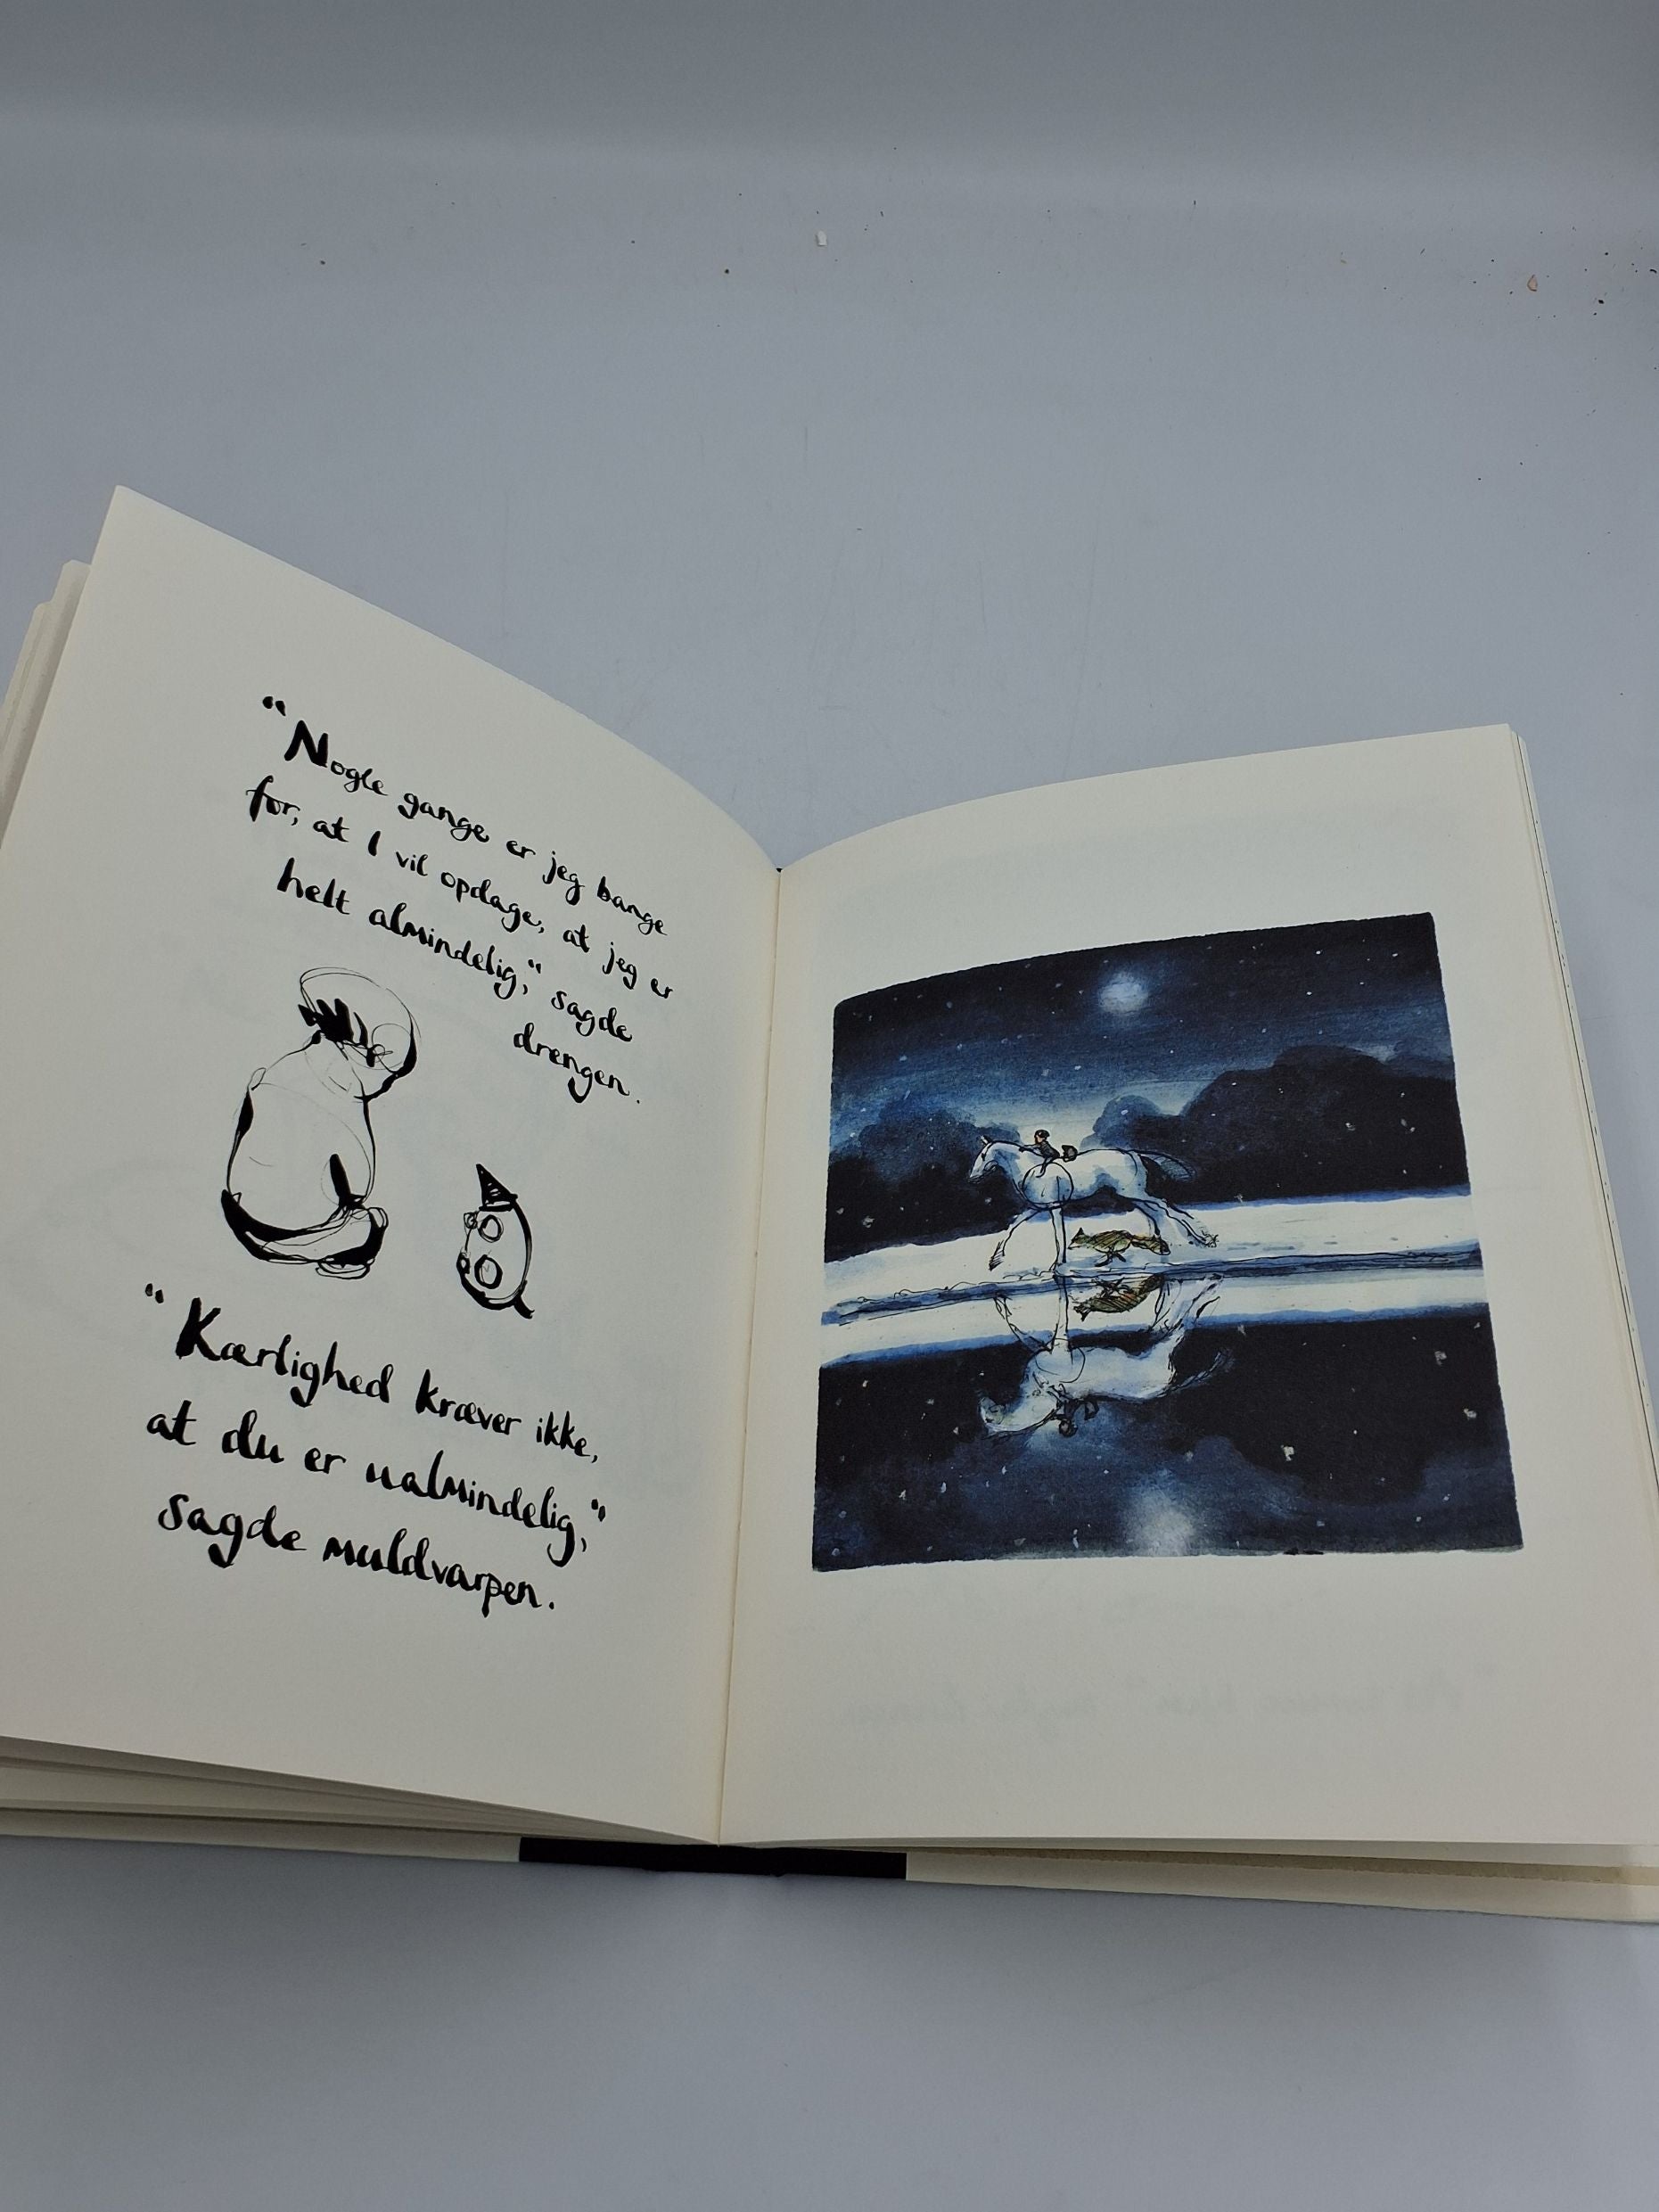 "Nogle gange er jeg bange
for, at I vil opdage, at jeg er
helt almindelig," sagde
drengen.
"Kærlighed kræver ikke,
at du er ualmindelig,"
sagde muldvarpen.